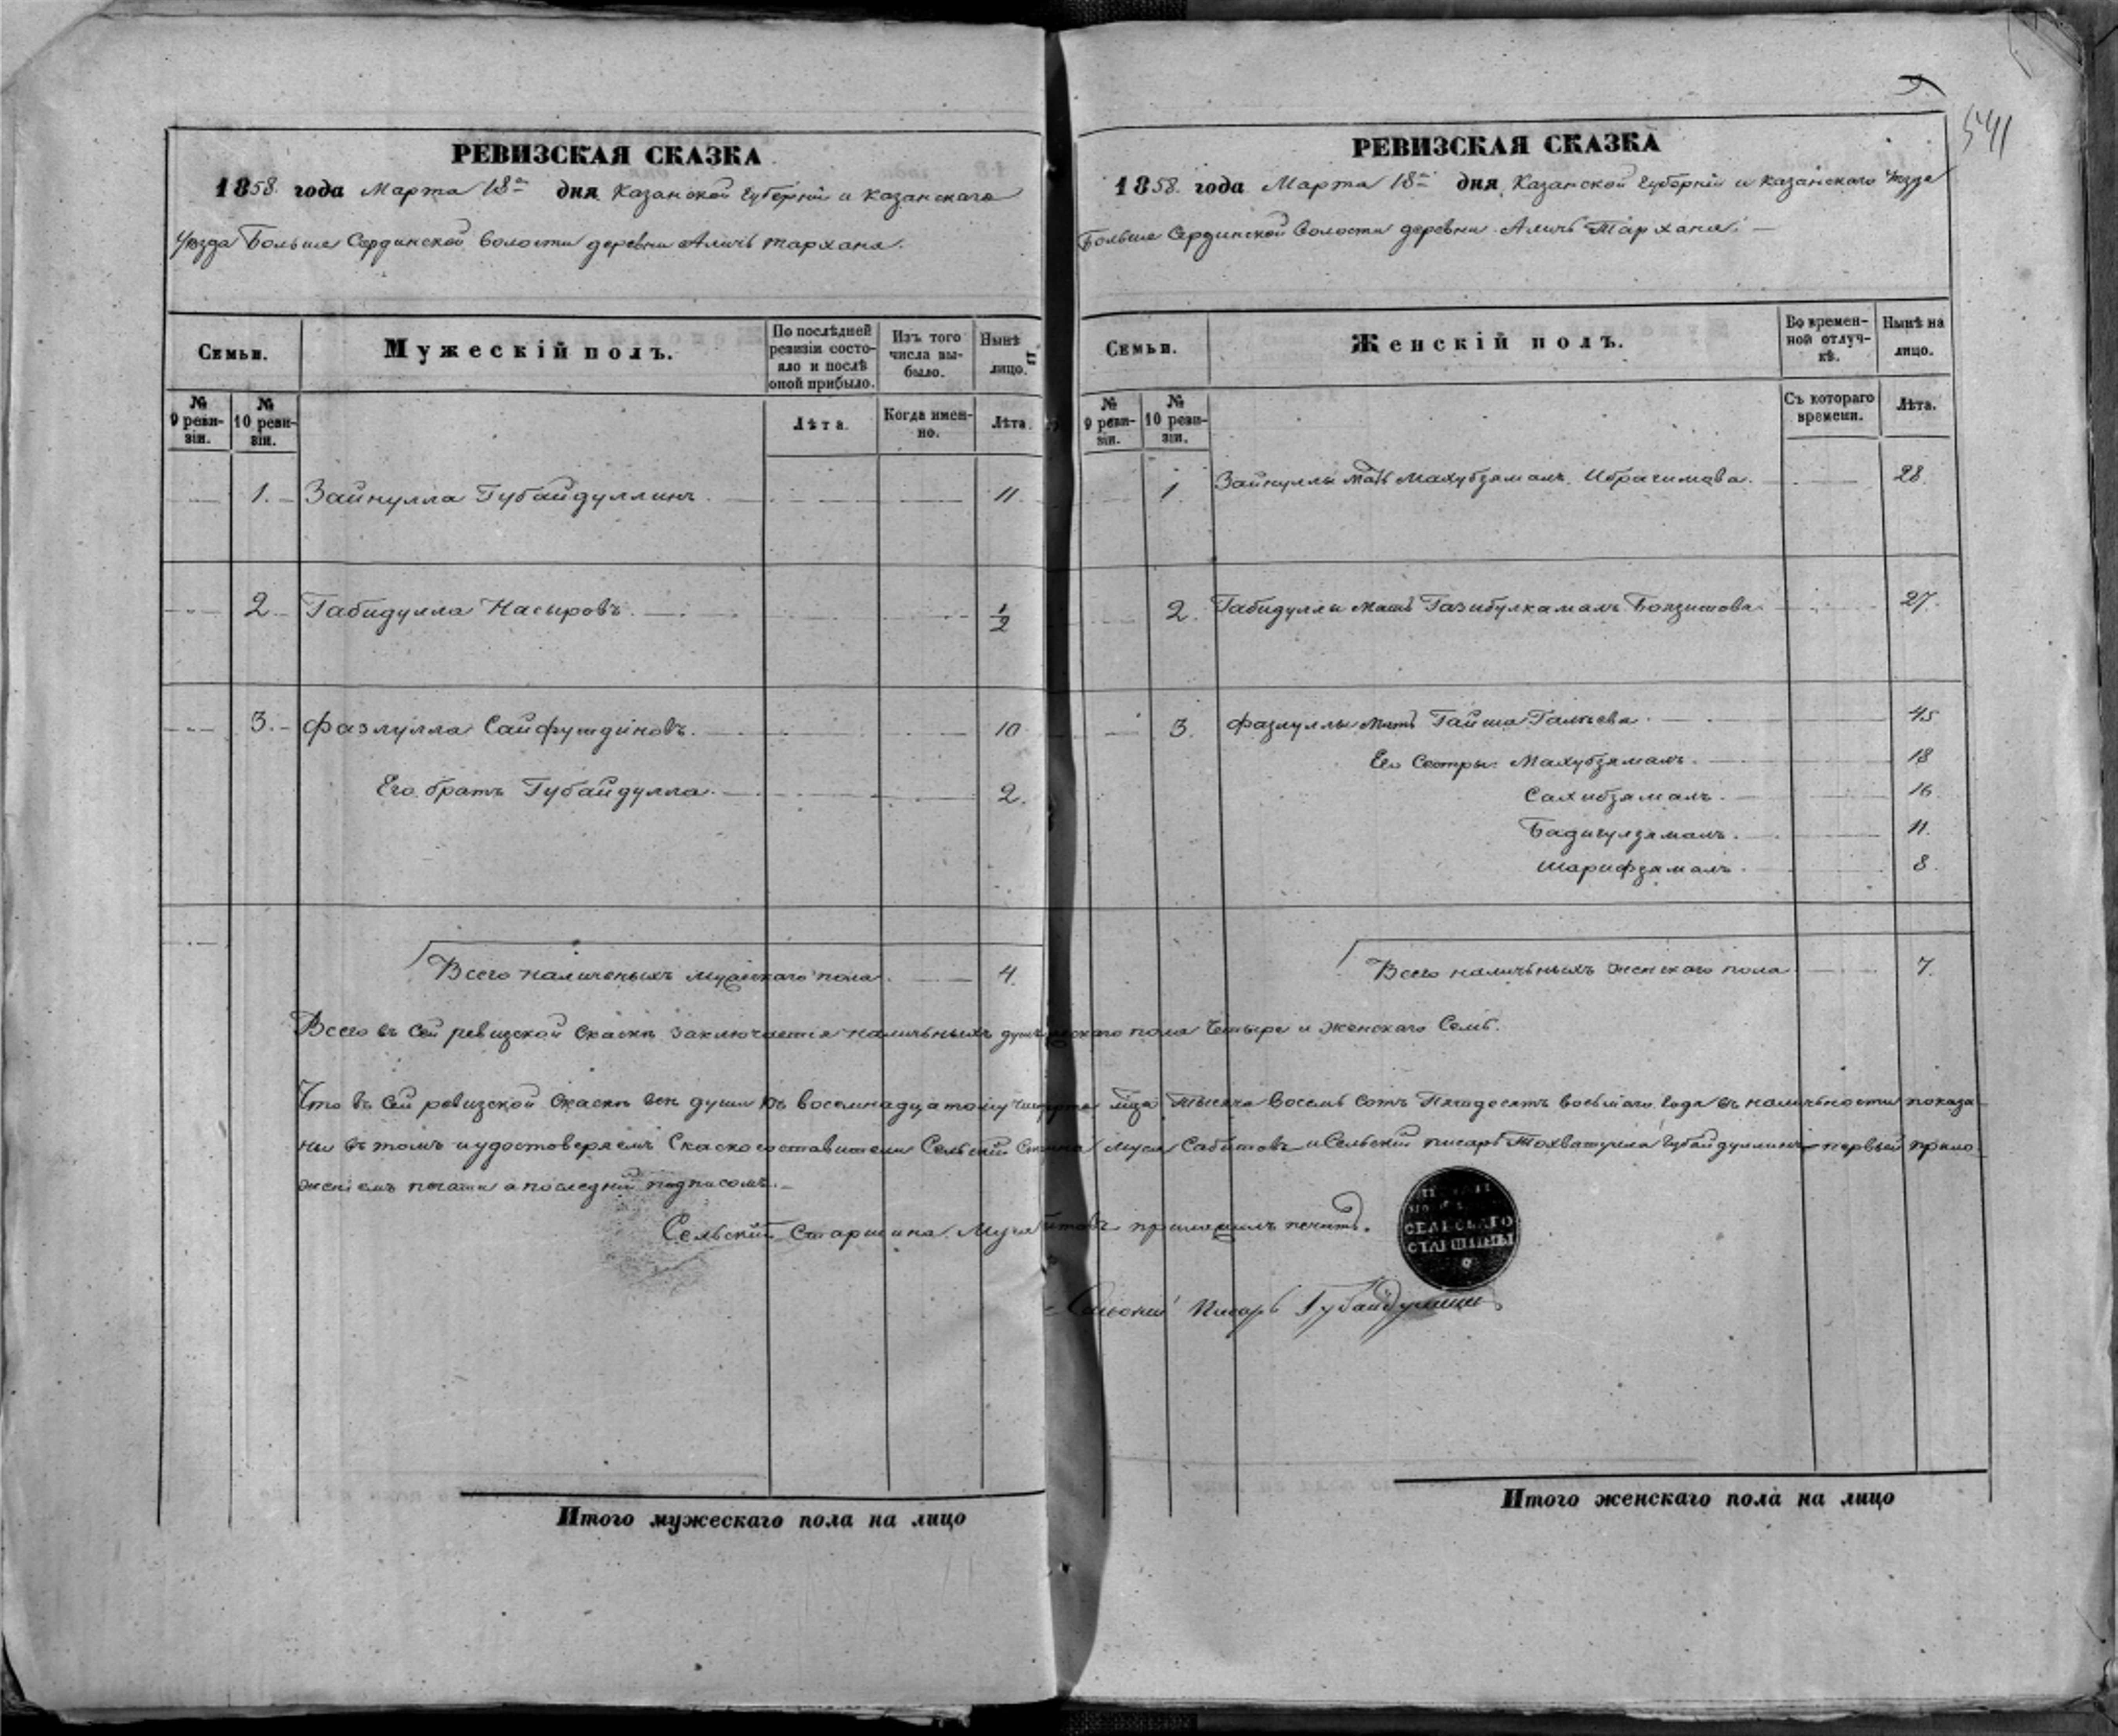 РЕВИЗСКАЯ СКАЗКА
1858. года Марта 18го дня Казанской Губерніи и Казанскаго
Уѣзда Больше Сердинской волости деревни Аличь Тархана.
Семьи.
Мужескій полъ.
По послѣдней ревизіи состояло и послѣ оной прибыло.
Изъ того числа выбыло.
Нынѣ лицо.
№ 9 ревизіи.
№ 10 ревизіи.
Лѣта.
Когда именно.
Лѣта.
1. Зайнулла Губайдуллинъ. 11.
2. Габидулла Насыровъ. 1/2
3. Фазлулла Сайфутдиновъ. 10
Его братъ Губайдулла. 2.
Всего наличныхъ мужескаго пола. 4.
541
РЕВИЗСКАЯ СКАЗКА
1858. года Марта 18го дня Казанской Губерніи и Казанскаго Уѣзда
Больше Сердинской волости деревни Аличь Тархана.
Семьи.
Женскій полъ.
Во временной отлучкѣ.
Нынѣ на лицо.
№ 9 ревизіи.
№ 10 ревизіи.
Съ котораго времени.
Лѣта.
1 Зайнуллы мать Махубзямалъ Ибрагимова. 28.
2. Габидуллы мать 27.
3. Фазлуллы мать Гайша Галѣева. 45
Его Сестры: Махубзямалъ. 18
Сахибзямалъ. 16.
Бадигулзямалъ. 11.
Шарифзямалъ. 8.
Всего наличныхъ женскаго пола 7.
Всего въ сей ревизской скаскѣ заключается наличныхъ душъ пола четыре и женскаго Семь.
Что въ сей ревизской скаскѣ всѣ души къ восемнадцатому мца Тысяча восемь сотъ Пятдесятъ восьмаго года въ наличности показа
ны въ томъ и удостоверяемъ Скаско составители Сельскій Муса Сабитовъ и Сельскій писарь Тохватулла Губайдуллинъ первый прило
женіемъ печати а последній подписомъ.
Сельскій Старшина Муса приложилъ печать.
СЕЛЬСКАГО
СТАРШИНЫ
Сельскій Писарь Губайдуллинъ
Итого мужескаго пола на лицо
Итого женскаго пола на лицо